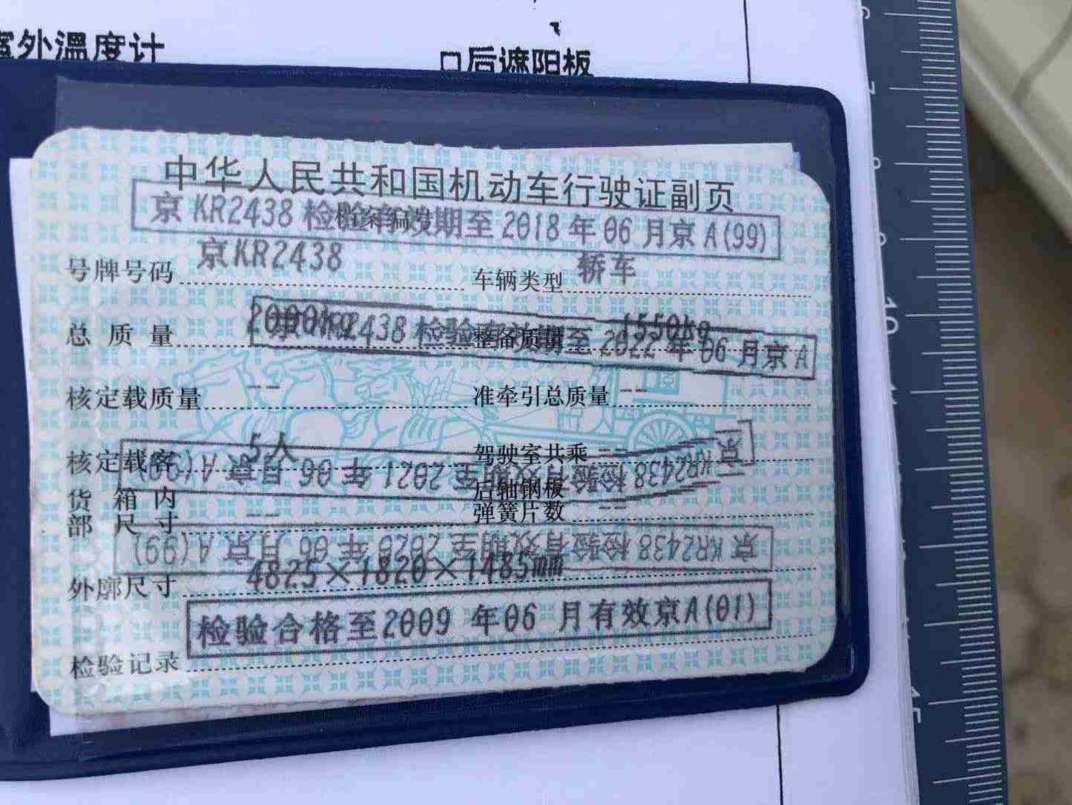 室外溫度计
□后遮阳板
中华人民共和国机动车行驶证副页
京KR2438 检验有效期至2018年06月京A(99)
号牌号码 京KR2438 车辆类型 轿车
总质量 2000kg 整备质量 1550kg
京KR2438 检验有效期至2022年06月京A
核定载质量 -- 准牵引总质量 --
核定载客 5人 驾驶室共乘 --
京KR2438 检验有效期至2021年06月京A(99)
货箱内部尺寸 -- 后轴钢板弹簧片数 --
京KR2438 检验有效期至2020年06月京A(99)
外廓尺寸 4825×1820×1485mm
检验合格至2009年06月有效京A(01)
检验记录